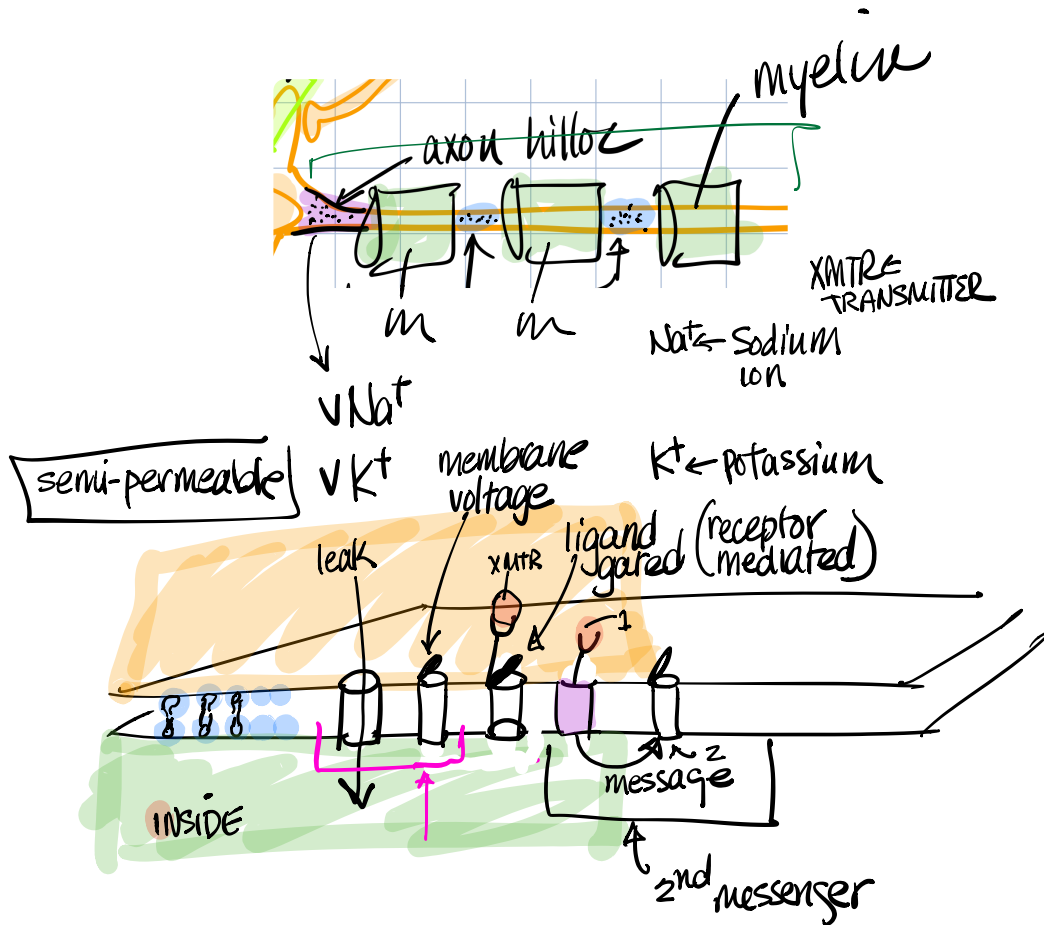 myelin
axon hilloc
m
m
XMTR ←
TRANSMITTER
Na⁺ ← Sodium
ion
vNa⁺
semi-permeable
vK⁺
membrane
voltage
K⁺ ← potassium
leak
XMTR
ligand
gared
(receptor
mediated)
1
2
message
INSIDE
2nd messenger